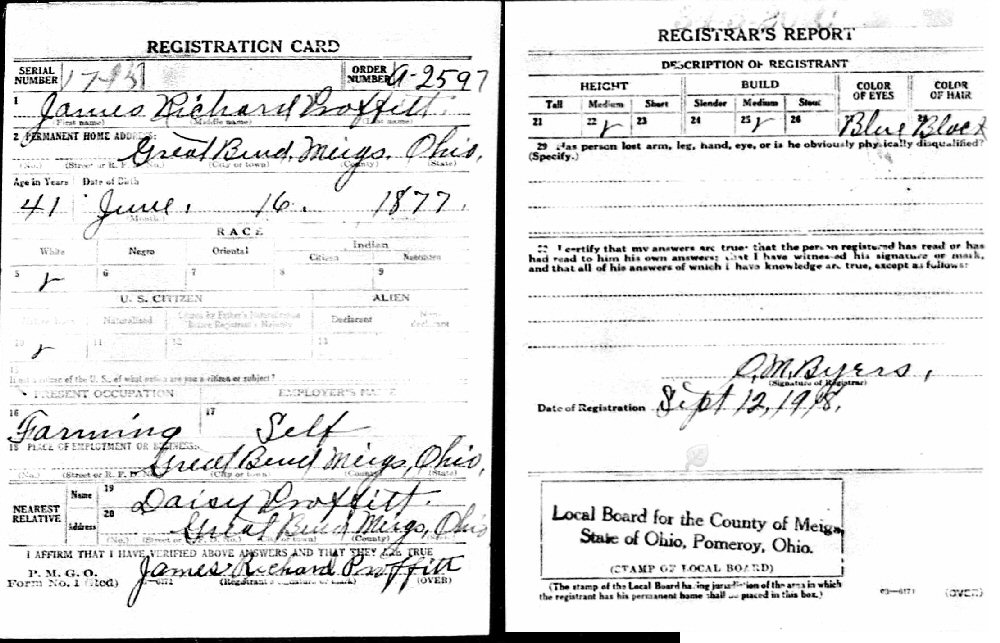 REGISTRATION CARD
SERIAL NUMBER
ORDER NUMBER A-2597
1 James Richard Proffitt
(First name) (Middle name) (Last name)
2 PERMANENT HOME ADDRESS:
Great Bend, Meigs, Ohio,
(No.) (Street or R. F. D. No.) (City or town) (County) (State)
Age in Years Date of Birth
41 June. 16. 1877.
(Month.)
RACE
White Negro Oriental Indian
Citizen Noncitizen
5 ✓ 6 7 8 9
U. S. CITIZEN ALIEN
Naturalized Citizen by Father's Naturalization Before Registrant's Majority Declarant Non-declarant
10 ✓ 11 12 13
15
If not a citizen of the U. S., of what nation are you a citizen or subject?
PRESENT OCCUPATION EMPLOYER'S NAME
16 Farming 17 Self
18 PLACE OF EMPLOYMENT OR BUSINESS:
Great Bend Meigs, Ohio,
(No.) (Street or R. F. D. No.) (City or town) (County) (State)
NEAREST RELATIVE
Name 19 Daisy Proffitt.
Address 20 Great Bend Meigs, Ohio
(No.) (Street or R. F. D. No.) (City or town) (County) (State)
I AFFIRM THAT I HAVE VERIFIED ABOVE ANSWERS AND THAT THEY ARE TRUE
P. M. G. O.
Form No. 1 (Red) James Richard Proffitt
(Registrant's signature or mark) (OVER)
REGISTRAR'S REPORT
DESCRIPTION OF REGISTRANT
HEIGHT BUILD COLOR OF EYES COLOR OF HAIR
Tall Medium Short Slender Medium Stout
21 22 ✓ 23 24 25 ✓ 26 27 Blue 28 Black
29 Has person lost arm, leg, hand, eye, or is he obviously physically disqualified?
(Specify.)
I certify that my answers are true; that the person registered has read or has
had read to him his own answers; that I have witnessed his signature or mark,
and that all of his answers of which I have knowledge are true, except as follows:
C. M. Byers,
(Signature of Registrar)
Date of Registration Sept 12, 1918.
Local Board for the County of Meigs
State of Ohio, Pomeroy, Ohio.
(STAMP OF LOCAL BOARD)
(The stamp of the Local Board having jurisdiction of the area in which
the registrant has his permanent home shall be placed in this box.)
03—6171 (OVER)